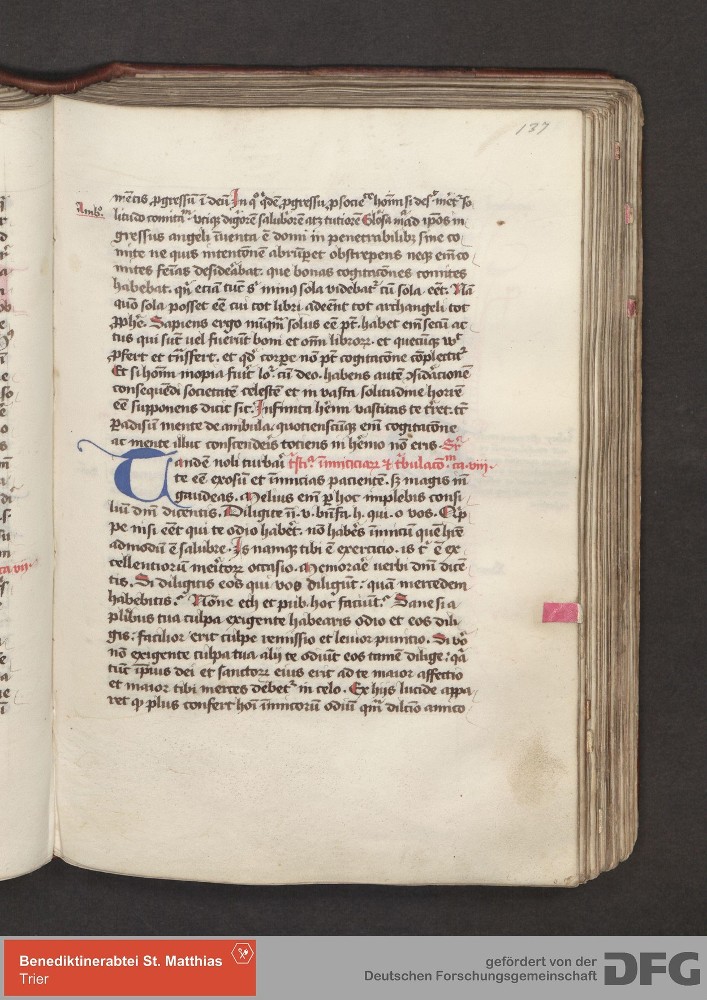 137
mētis ꝓgressū ī deū In qͦ qͥdē ꝓgressu, ꝓ societᵉ homī si desͬ mērͭ so
Ambͦ.
litudo comitūͬ utiqꝫ digͥorē salubͥorē atꝫ tutiorē Glosa
gressus angeli īuenta ē domi in penetrabilibꝫ sine co
mite ne quis intentōnē abrūpet obstrepens neqꝫ eī co
mites feīas desiderabat. que bonas cogitacōnes comites
habebat. qn̄ eciā tūc sͥ minꝰ sola videbatͬ cū sola eēt. Nā
quō sola posset eē cui tot libri adeēnt tot archangeli tot
ꝓphē. Sapiens ergo nūqͣm solus eē pt̄. habet em̄ secū ac
tus qui sūt uel fuerūt boni et om̄ librorꝝ. et quecūqꝫ
ꝓfert et trāsfert. et qd̕ corpe nō pt̄ cogitacōne cōpletitͬ
Et si homī inopia fuīt loͬ cū deo. habens autē
consequēdi societatē celestē et in vasta solitudine horrē
eē supponens dicit sic. Infinita h̕emi vastitas te t̕ret. tu
ꝑadisū mente deambula. quotienscūqꝫ em̄ cogitacōne
ac mente illuc conscenderis totiens in h̕emo nō eris. Sͬ
Tandē noli turbaī tͥstiͣ īimiciciarꝝ et tͥbulacōm̄ ca. viij.
te eē exosū et īimicias pacientē. sꝫ magis in
gaudeas. Melius em̄ ꝑ hoc implebis consi
liū dn̄i dicentis. Diligite īi. v. bn̄fa. h. qui. o vos. Qͥp
pe nisi eēt qui te odio habēt. nō habēs īimicū quē h̕re
admodū ē salubre. Is namqꝫ tibi ē exercicio. is tͥ ē ex
cellentiorū meͥtorꝝ occasio. Memorare uerbi dn̄i dicē
tis. Si diligitis eos qui vos diligūt: quā mercedem
habebitis? Nōne eth et pub. hoc faciūt? Sane si a
plͥibus tua culpa exigente habearis odio et eos dili
gis: facilior erit culpe remissio et leuior punitio. Si vͦo
nō exigente culpa tua alij te odiūt eos tamē dilige: qͣ
tūc ipīus dei et sanctorꝝ eius erit ad te maior affectio
et maior tibi merces debetͬ in celo. Ex hijs lucide appa
ret qꝫ plus confert hoī īimicorū odiū qͣm dilcō amico
Benediktinerabtei St. Matthias
Trier
gefördert von der
Deutschen Forschungsgemeinschaft
DFG